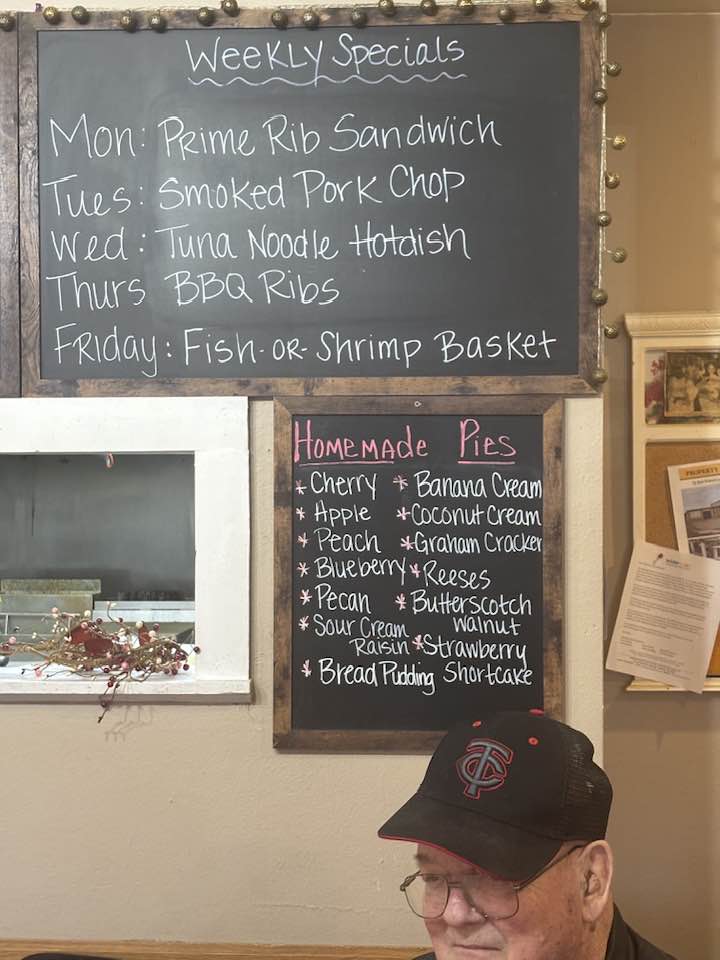 Weekly Specials
Mon: Prime Rib Sandwich
Tues: Smoked Pork Chop
Wed: Tuna Noodle Hotdish
Thurs BBQ Ribs
Friday: Fish-or-Shrimp Basket
Homemade Pies
* Cherry
* Apple
* Peach
* Blueberry
* Pecan
* Sour Cream
Raisin
* Bread Pudding
* Banana Cream
* Coconut Cream
* Graham Cracker
* Reeses
* Butterscotch
Walnut
* Strawberry
Shortcake
PROPERTY
TC